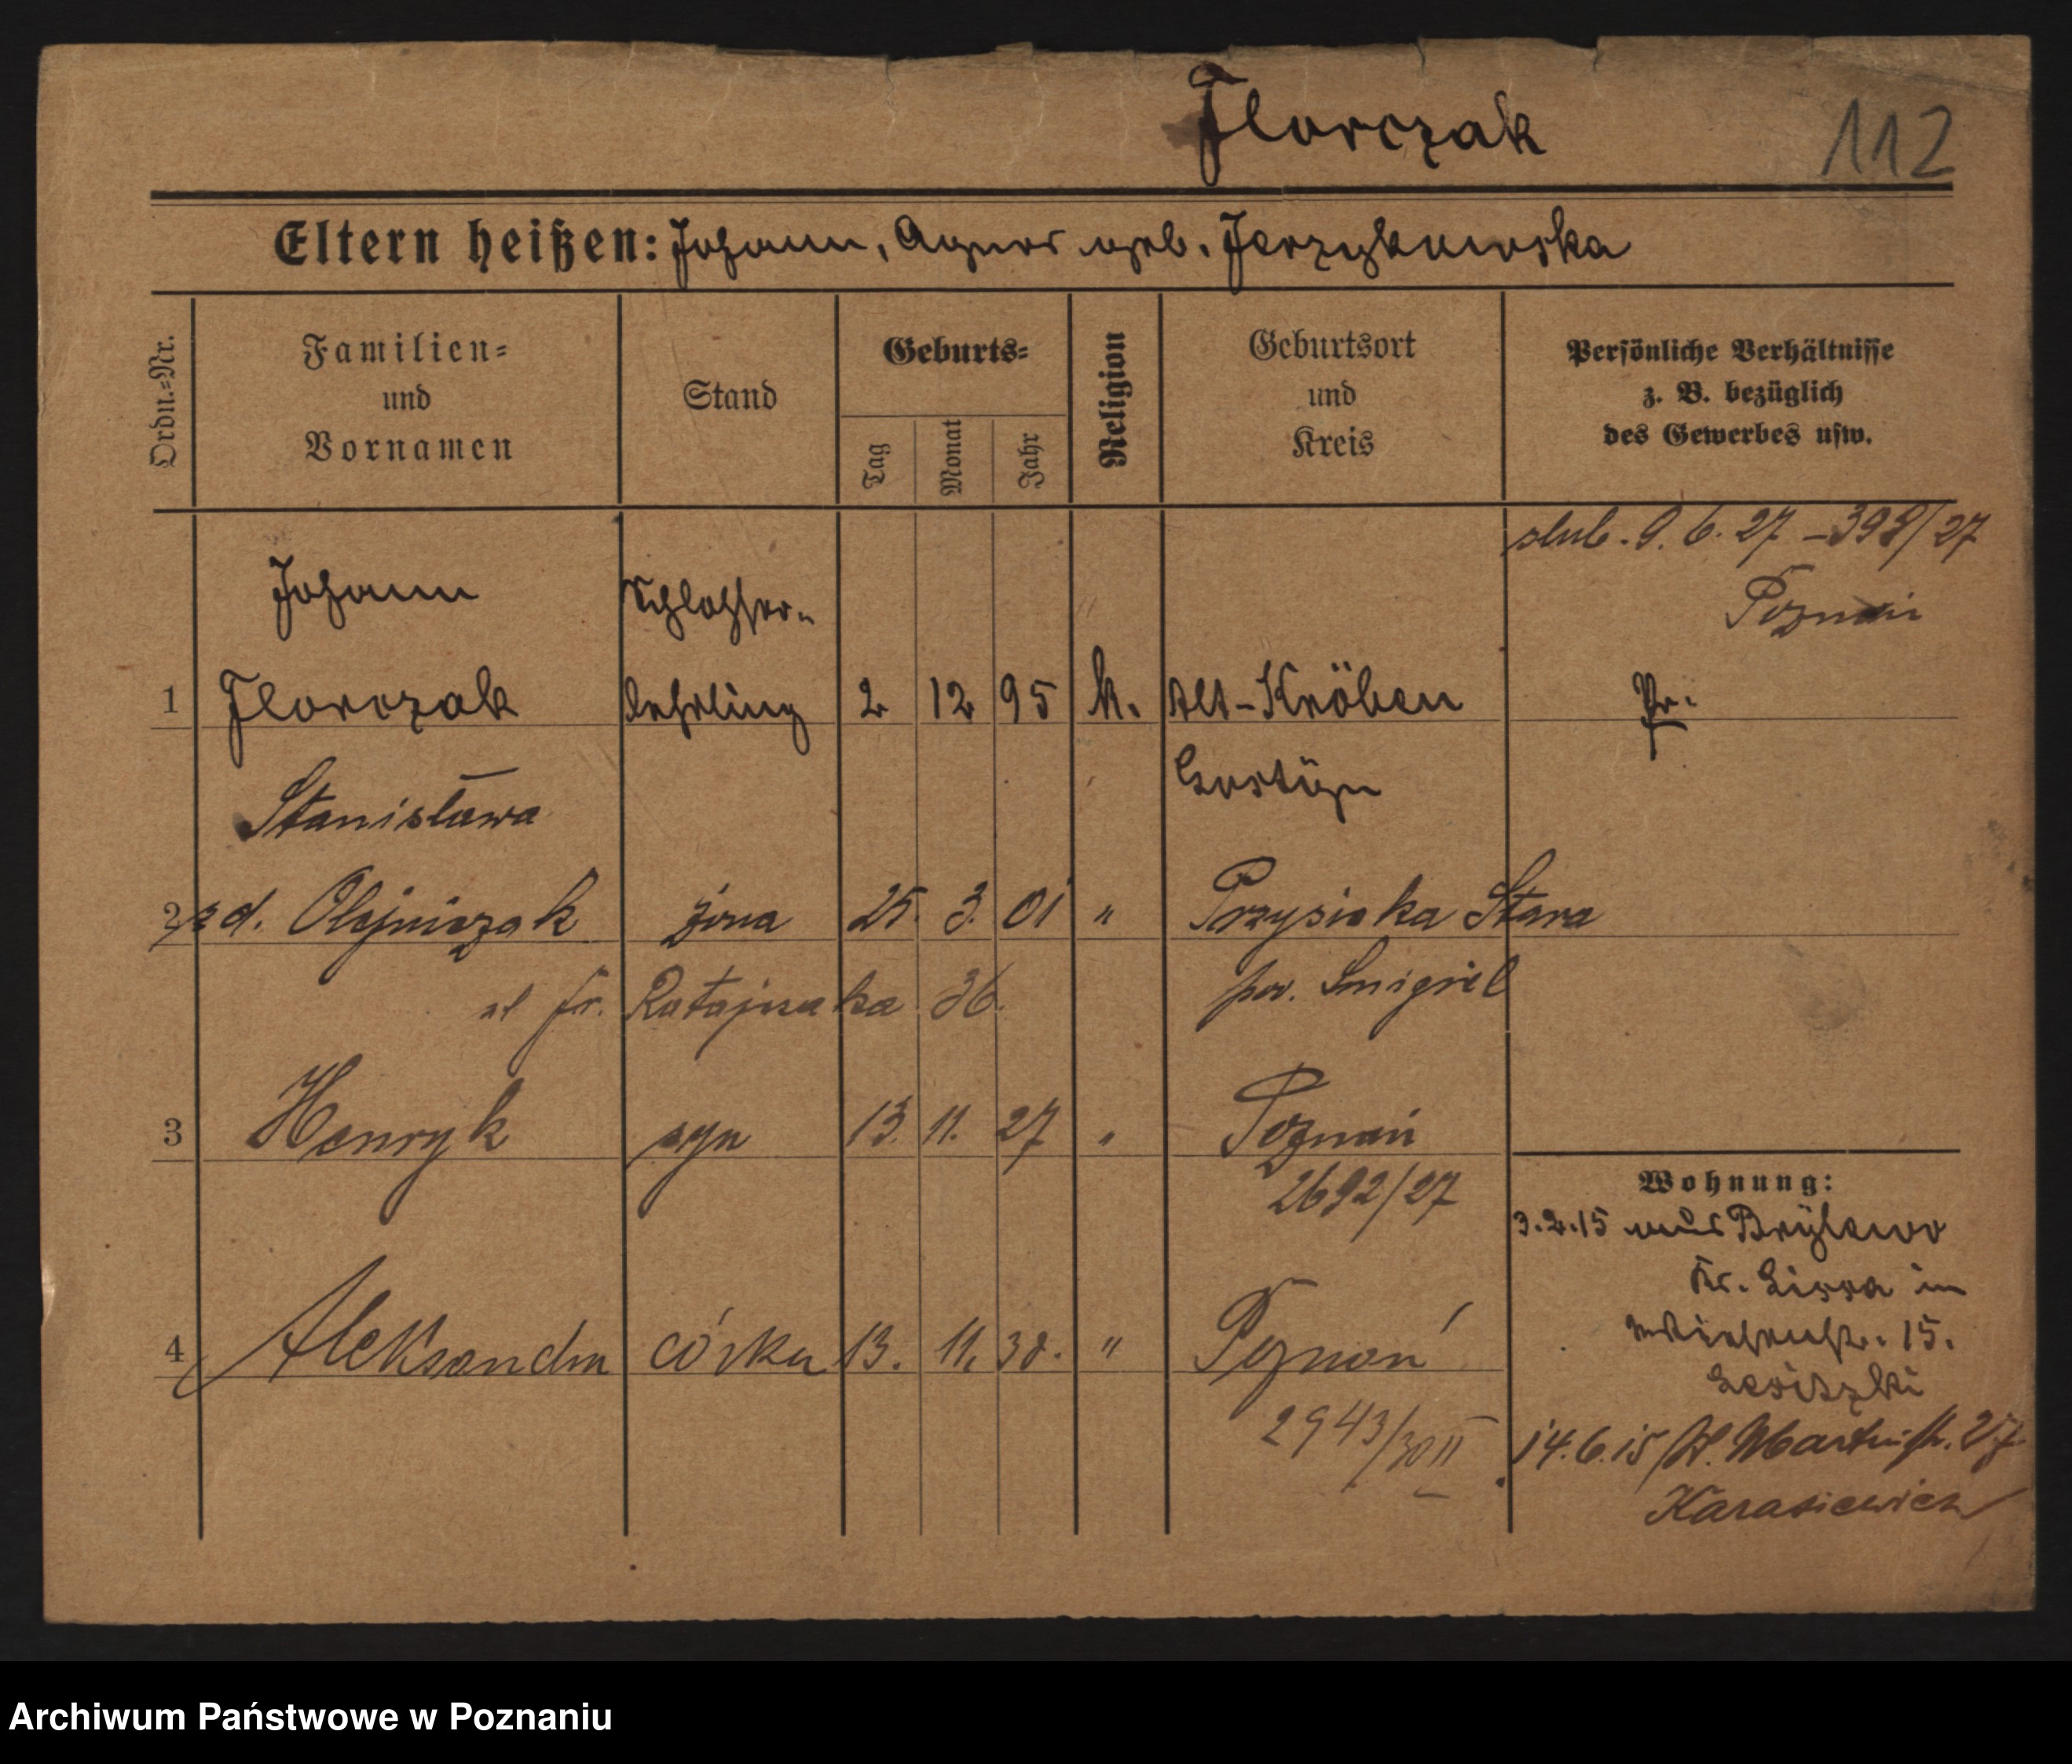 Florczak
112
Eltern heißen: Johann, Agnes geb. Jerzykowska
Ordn.-Nr.
Familien-
und
Vornamen
Stand
Geburts-
Tag
Monat
Jahr
Religion
Geburtsort
und
Kreis
Persönliche Verhältnisse
z. B. bezüglich
des Gewerbes usw.
ślub. 9. 6. 27 – 398/27
Poznań
Johann Schlosser-
1 Florczak lehrling 2 12 95 k. Alt-Kröben Pr.
Gostÿn
Stanisława
2 zd. Olejniczak żona 25. 3. 01 " Przysieka Stara
ul Fr. Ratajczaka 36. pow. Śmigiel
3 Henryk syn 13. 11. 27 " Poznań
2692/27
4 Aleksandra córka 13. 11. 30. " Poznań
2943/30 II
Wohnung:
3.2.15 aus Brÿlewo
Kr. Lissa in
15.
14.6.15 St. Martinstr. 27
Karasiewicz
Archiwum Państwowe w Poznaniu